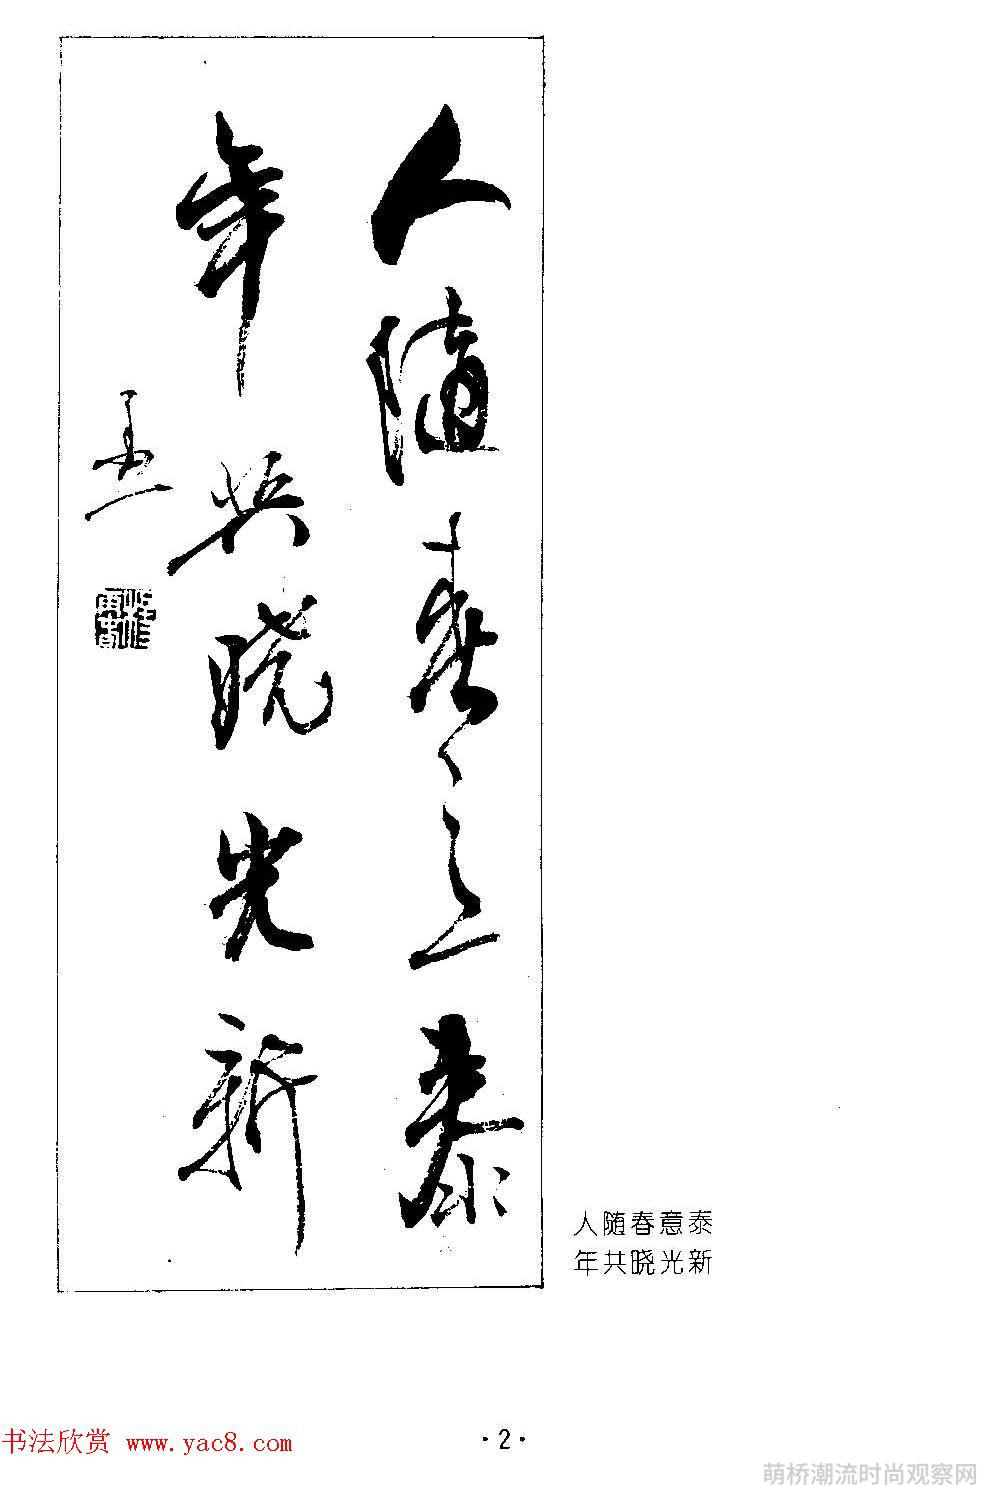 人随春意泰
年共晓光新
人随春意泰
年共晓光新
·2·
书法欣赏 www.yac8.com
萌桥潮流时尚观察网